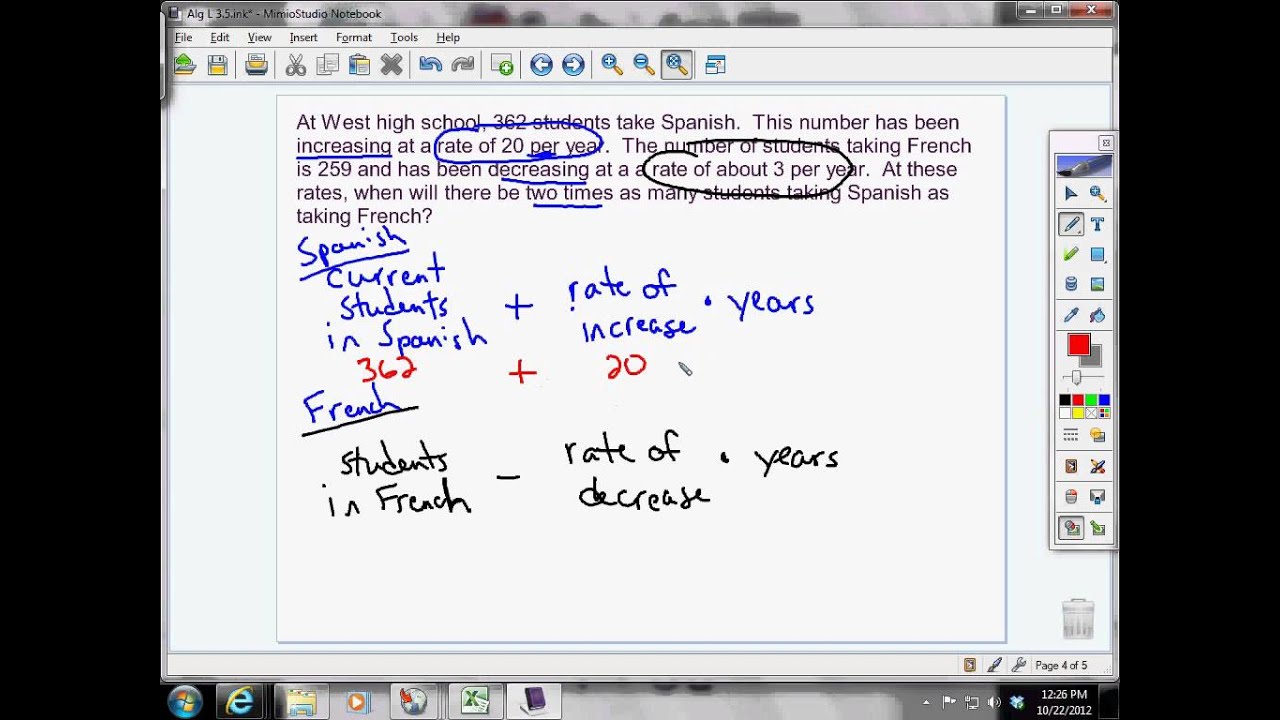 Alg L 3.5.ink* - MimioStudio Notebook
File Edit View Insert Format Tools Help
At West high school, 362 students take Spanish. This number has been
increasing at a rate of 20 per year. The number of students taking French
is 259 and has been decreasing at a a rate of about 3 per year. At these
rates, when will there be two times as many students taking Spanish as
taking French?
Spanish
current
students
in Spanish
+
rate of
increase
· years
362 + 20
French
students
in French
-
rate of
decrease
· years
Page 4 of 5
12:26 PM
10/22/2012